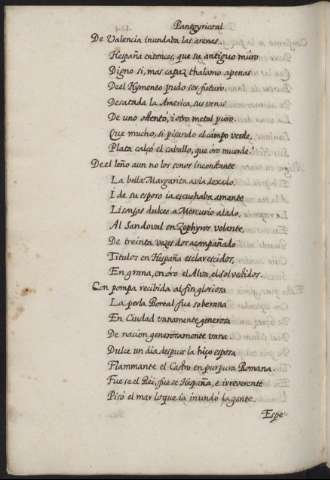 Panegyrical
De Valencia inundaba las arenas
Hespaña entonces, que su antiguo muro
Digno si, mas capaz thalamo apenas
De el Hymeneo pudo ser futuro.
Desatada la America sus venas
De uno ostento, i otro metal puro.
Que mucho, si pisando el campo verde,
Plata calçò el caballo, que oro muerde!
De el leño aun no los senos inconstante
La bella Margarita avia dexado.
I de su esposo ia escuchaba amante
Lisonjas dulces a Mercurio alado,
Al Sandoval en Zephyros volante,
De treinta vezes dos acompañado
Titulos en Hespaña esclarecidos,
En grana, en oro el Alva, el sol vestidos.
Con pompa recibida al fin gloriosa
La perla Boreal fue soberana
En Ciudad vanamente generosa
De nacion generosamente vana
Dulce un dia despues la hizo esposa
Flammante el Castro en purpura Romana.
Fuese el Rei, fuese Hespaña, e irreverente
Pisó el mar lo que ia inundó la gente.
Espe